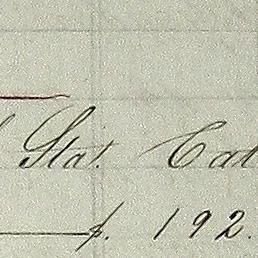 Stat. Cat
p. 192.